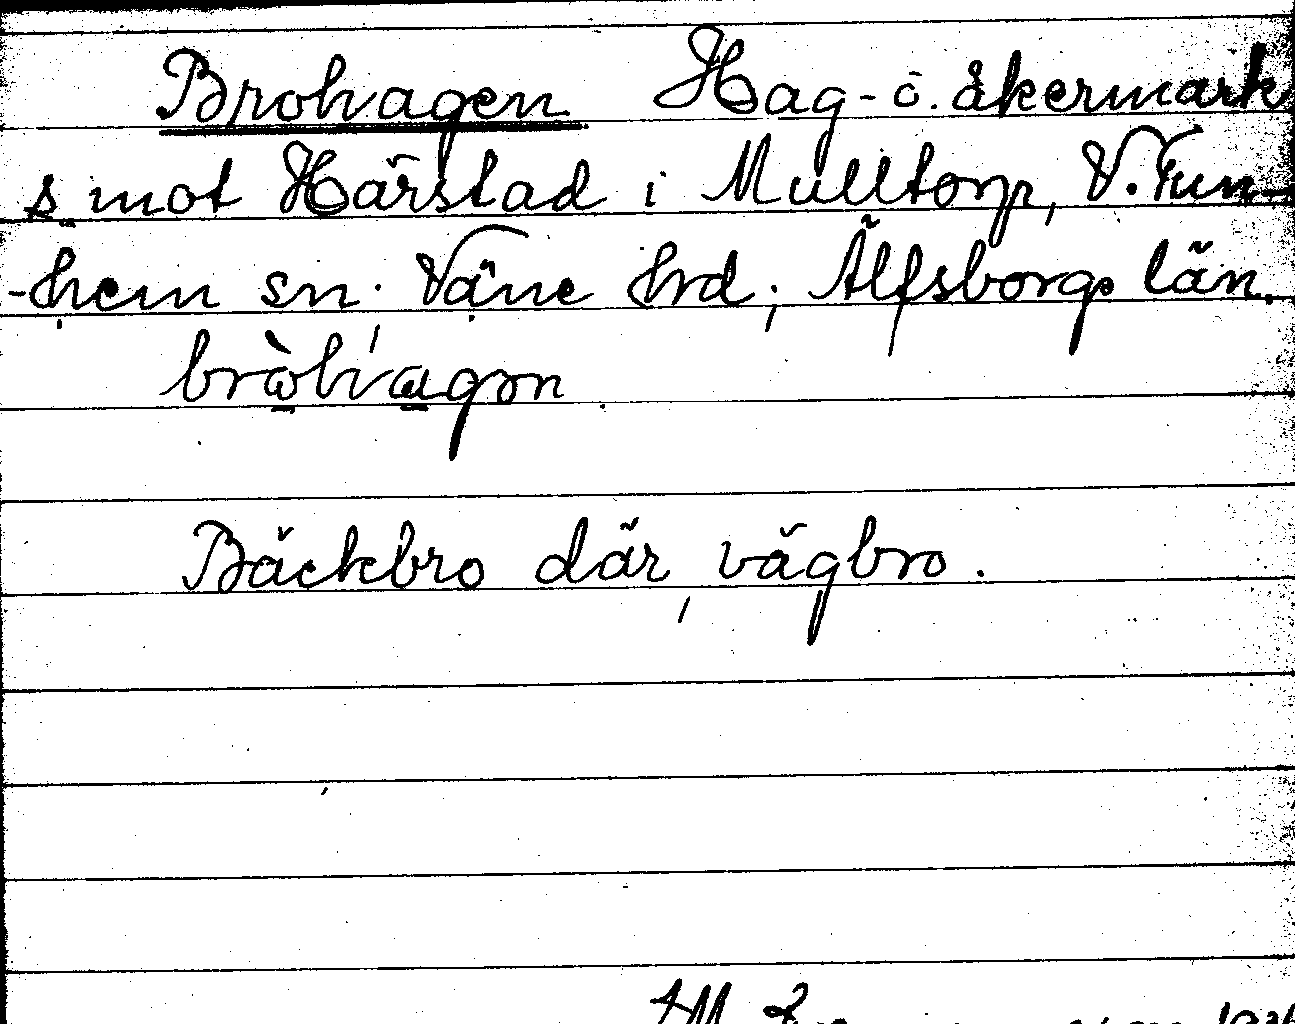 Brohagen Hag- o. åkermark
s. mot Härstad i Mulltorp, V. Tun-
-hem sn. Väne hd; Älfsborgs län.
Bäckbro där, vägbro.